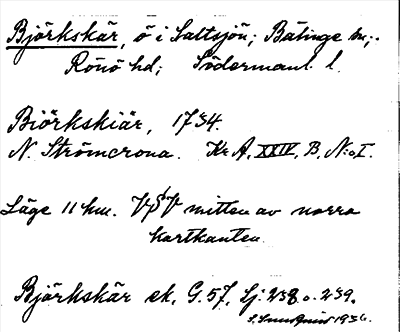 Björkskär, ö i Saltsjön; Bälinge sn;
Rönö hd; Södermanl. l.
Biörkskiär, 1734.
N. Strömcrona. Kr A, XXIV, B, N:o I.
Läge 11 km. mitten av norra
kartkanten.
Björkskär ek. G. 57, Lj: 238 o. 239.
1936.